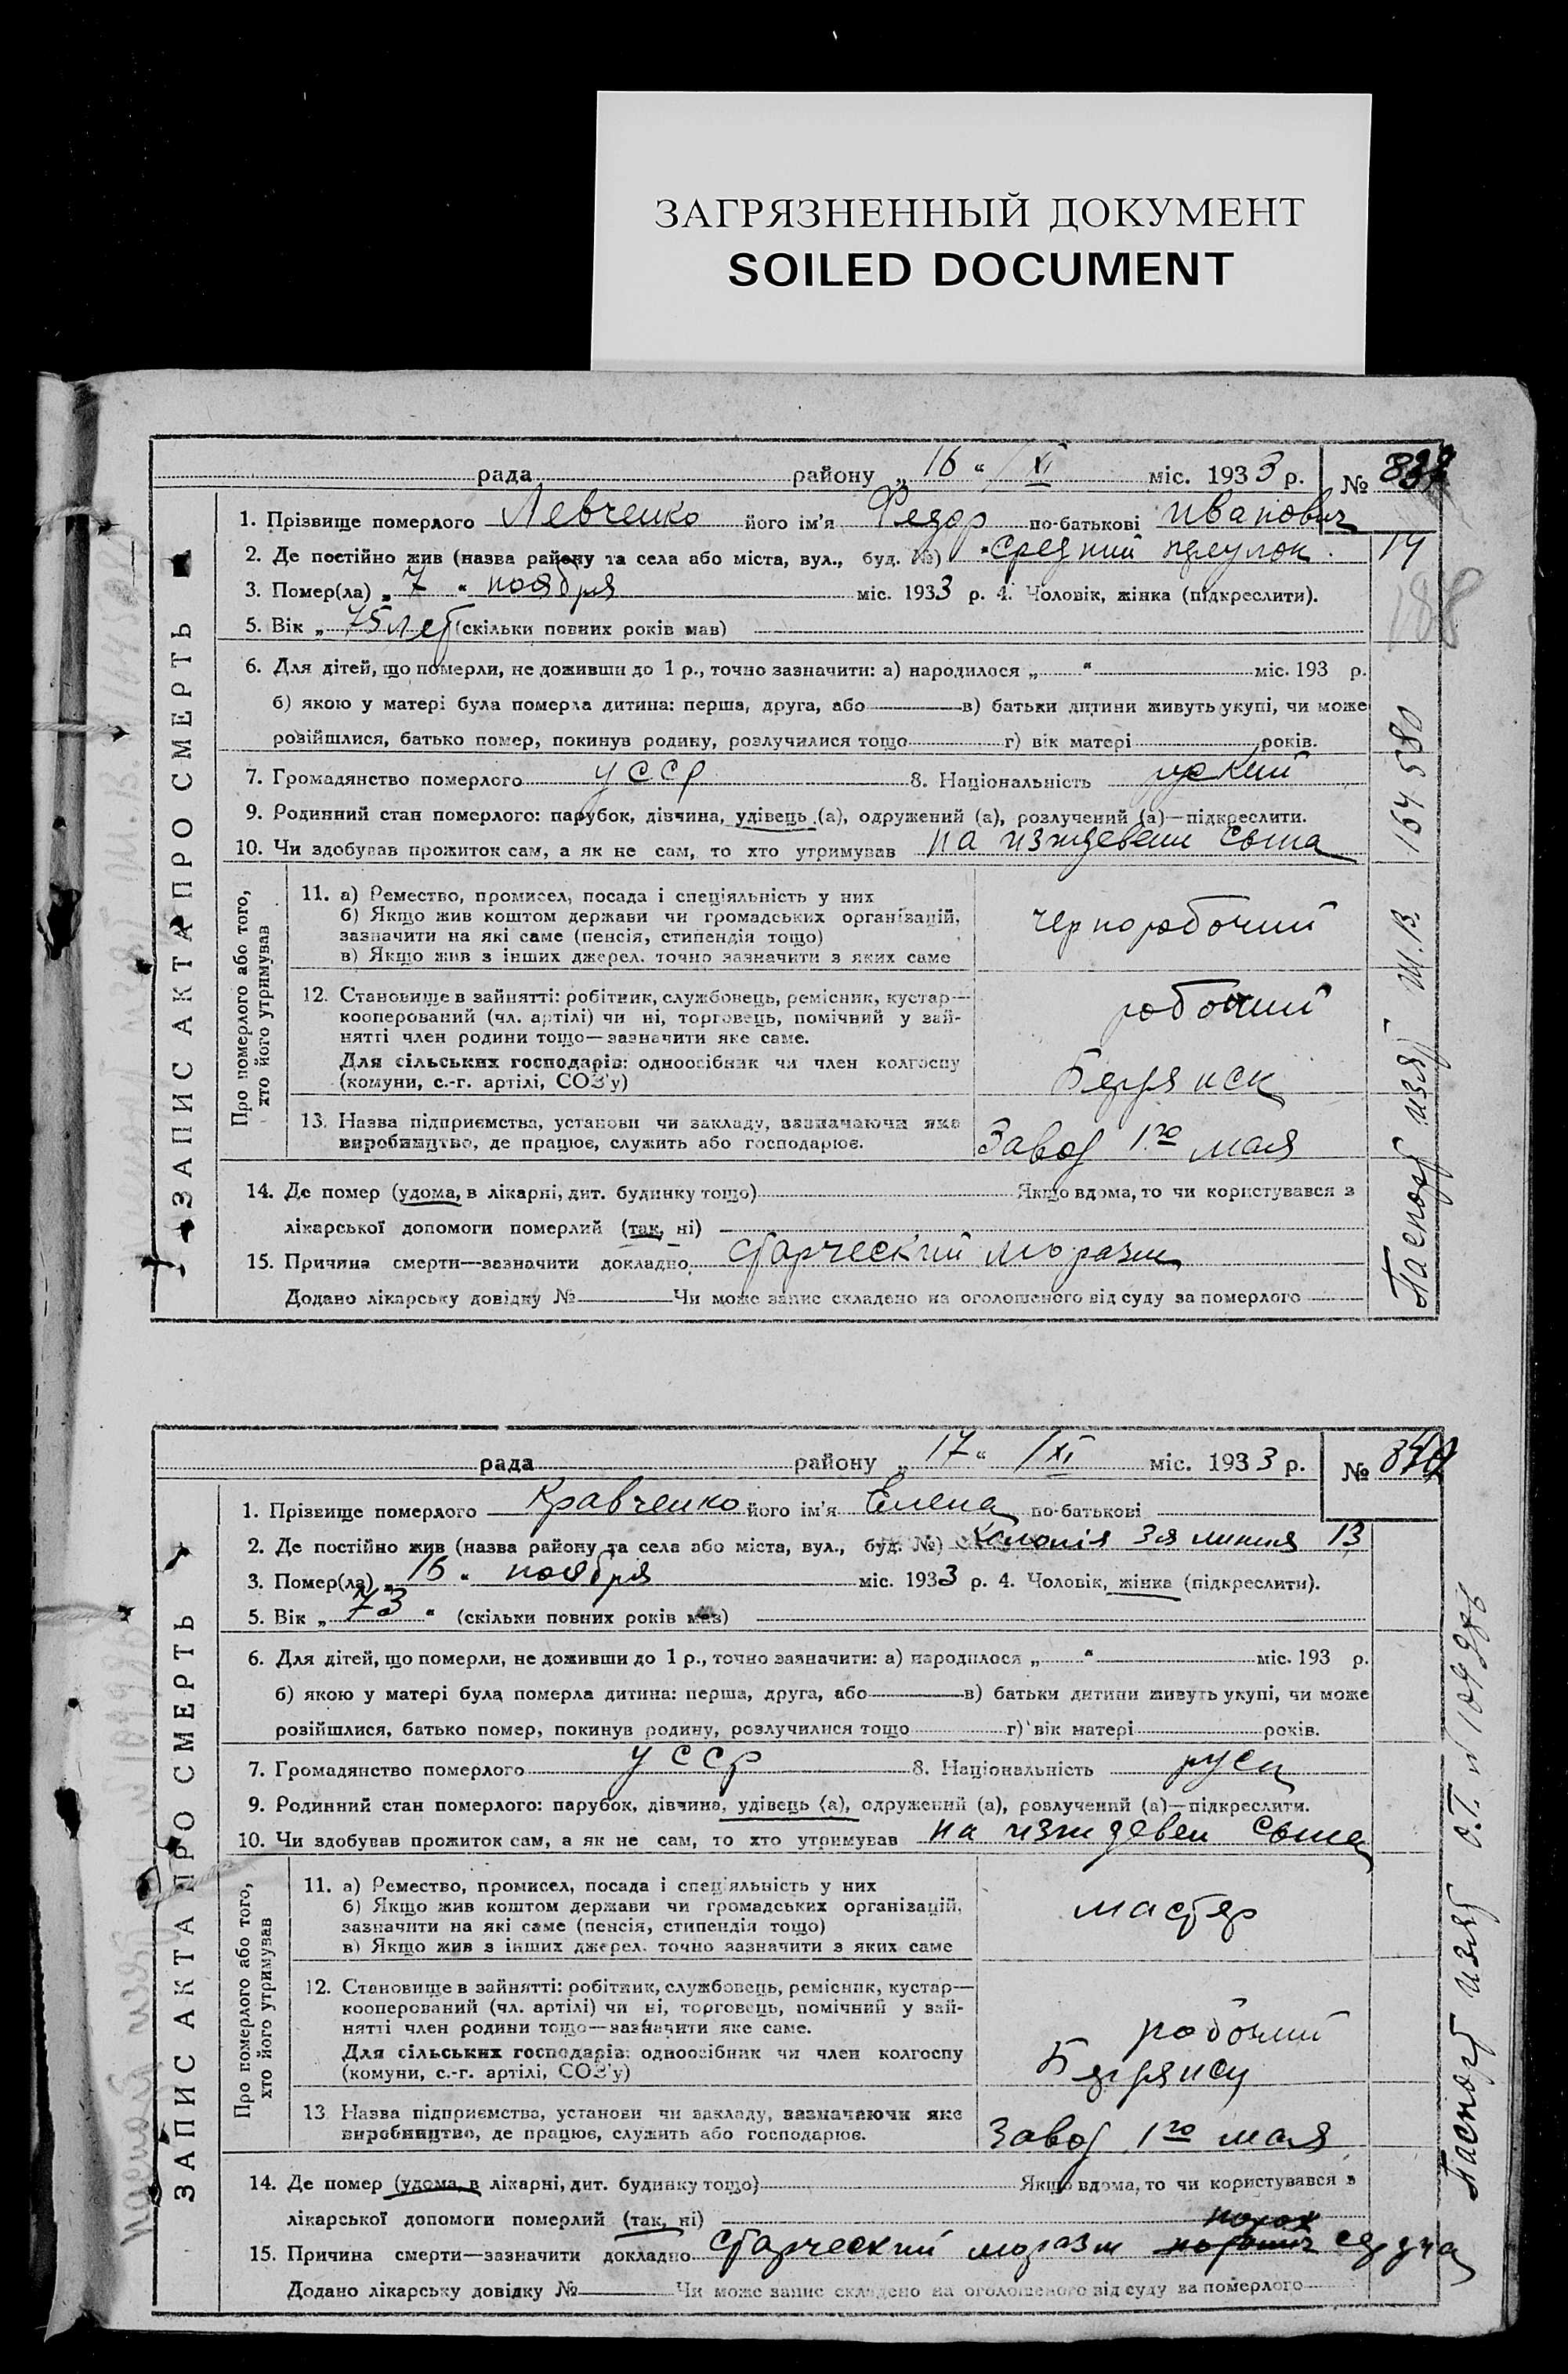 ЗАГРЯЗНЕННЫЙ ДОКУМЕНТ
SOILED DOCUMENT
рада району „16“ /XI міс. 1933 р. №
1. Прізвище померлого Левченко його ім'я Федор по-батькові Иванович
2. Де постійно жив (назва району та села або міста, вул., буд. №) Средний 14
3. Помер(ла) „7“ ноября міс. 1933 р. 4. Чоловік, жінка (підкреслити).
188
5. Вік „75 лет (скільки повних років мав)
6. Для дітей, що померли, не доживши до 1 р., точно зазначити: а) народилося „ “ міс. 193 р.
б) якою у матері була померла дитина: перша, друга, або в) батьки дитини живуть укупі, чи може
розійшлися, батько помер, покинув родину, розлучилися тощо г) вік матері років.
7. Громадянство померлого УССР 8. Національність
9. Родинний стан померлого: парубок, дівчина, удівець (а), одружений (а), розлучений (а)—підкреслити.
10. Чи здобував прожиток сам, а як не сам, то хто утримував на сына
ЗАПИС АКТА ПРО СМЕРТЬ
Про померлого або того,
хто його утримував
11. а) Ремество, промисел, посада і спеціяльність у них
б) Якщо жив коштом держави чи громадських організацій,
зазначити на які саме (пенсія, стипендія тощо)
в) Якщо жив з інших джерел. точно зазначити з яких саме
чернорабочий
12. Становище в зайнятті: робітник, службовець, ремісник, кустар—
кооперований (чл. артілі) чи ні, торговець, помічний у зай-
нятті член родини тощо—зазначити яке саме.
Для сільських господарів: одноосібник чи член колгоспу
(комуни, с.-г. артілі, СОЗ'у)
рабочий
Бердянск
13. Назва підприємства, установи чи закладу, зазначаючи яке
виробництво, де працює, служить або господарює.
Завод 1го мая
14. Де помер (удома, в лікарні, дит. будинку тощо) Якщо вдома, то чи користувався з
лікарської допомоги померлий (так, ні)
15. Причина смерти—зазначити докладно старческий моразм
Додано лікарську довідку № Чи може запис складено на оголошеного від суду за померлого
Паспорт изят Ш.В. 164580
рада району „17“ /XI міс. 1933 р. №
1. Прізвище померлого Кравченко його ім'я Елена по-батькові
2. Де постійно жив (назва району та села або міста, вул., буд. №) Колонія 3я линия 13
3. Помер(ла) „16“ ноября міс. 1933 р. 4. Чоловік, жінка (підкреслити).
5. Вік „73“ (скільки повних років мав)
6. Для дітей, що померли, не доживши до 1 р., точно зазначити: а) народилося „ “ міс. 193 р.
б) якою у матері була померла дитина: перша, друга, або в) батьки дитини живуть укупі, чи може
розійшлися, батько помер, покинув родину, розлучилися тощо г) вік матері років.
7. Громадянство померлого УССР 8. Національність руск
9. Родинний стан померлого: парубок, дівчина, удівець (а), одружений (а), розлучений (а)—підкреслити.
10. Чи здобував прожиток сам, а як не сам, то хто утримував на сына
ЗАПИС АКТА ПРО СМЕРТЬ
Про померлого або того,
хто його утримував
11. а) Ремество, промисел, посада і спеціяльність у них
б) Якщо жив коштом держави чи громадських організацій,
зазначити на які саме (пенсія, стипендія тощо)
в) Якщо жив з інших джерел. точно зазначити з яких саме
мастер
12. Становище в зайнятті: робітник, службовець, ремісник, кустар—
кооперований (чл. артілі) чи ні, торговець, помічний у зай-
нятті член родини тощо—зазначити яке саме.
Для сільських господарів: одноосібник чи член колгоспу
(комуни, с.-г. артілі, СОЗ'у)
рабочий
Бердянск
13 Назва підприємства, установи чи закладу, зазначаючи яке
виробництво, де працює, служить або господарює.
Завод 1го мая
14. Де помер (удома, в лікарні, дит. будинку тощо) Якщо вдома, то чи користувався з
лікарської допомоги померлий (так, ні)
15. Причина смерти—зазначити докладно старческий моразм порок сердца
Додано лікарську довідку № Чи може запис складено на оголошеного від суду за померлого
Паспорт изят О.Т. №